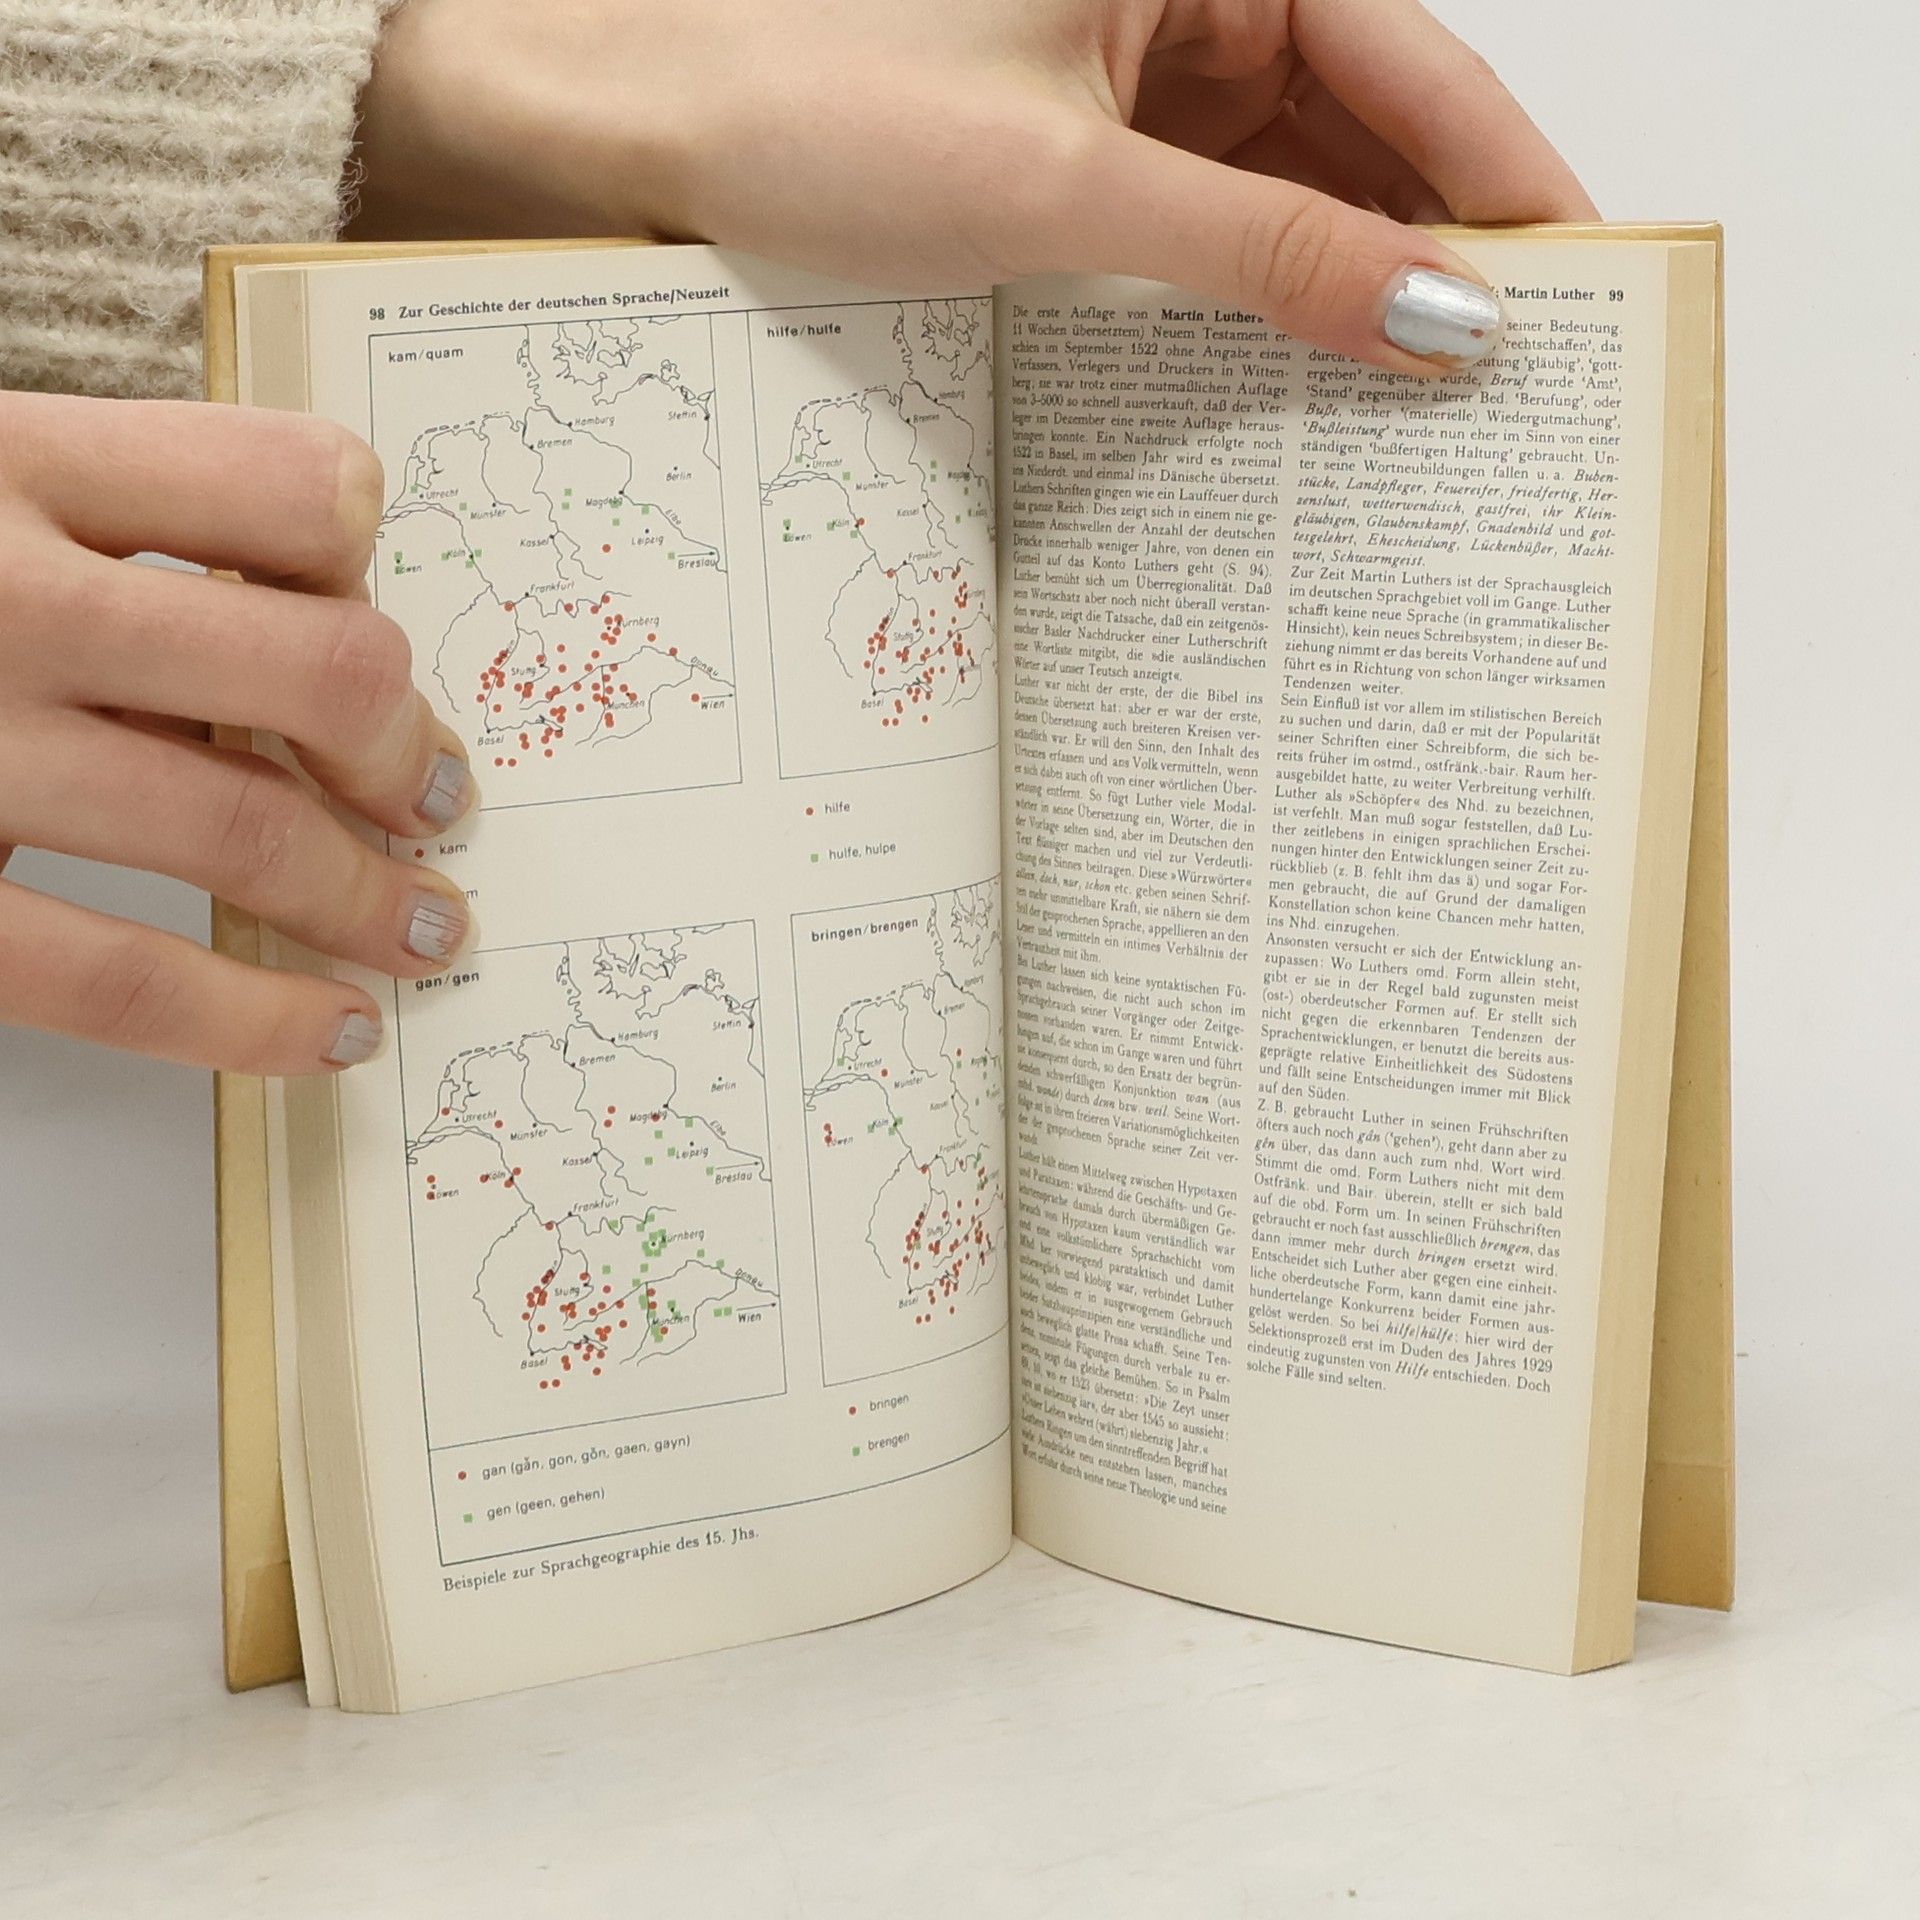 98 Zur Geschichte der deutschen Sprache/Neuzeit
kam/quam
Hamburg
Stettin
Bremen
Berlin
Utrecht
Münster
Magdebg
Elbe
Kassel
Leipzig
Köln
Breslau
Löwen
Frankfurt
Nürnberg
Stuttg
Donau
München
Wien
Basel
kam
hilfe/hulfe
Hamburg
Bremen
Utrecht
Münster
Köln
Kassel
Löwen
Frankfurt
Stuttg
Basel
hilfe
hulfe, hulpe
gan/gen
Hamburg
Stettin
Bremen
Berlin
Utrecht
Münster
Magdebg
Elbe
Kassel
Leipzig
Köln
Breslau
Löwen
Frankfurt
Nürnberg
Stuttg
Donau
München
Wien
Basel
gan (gǎn, gon, gǒn, gaen, gayn)
gen (geen, gehen)
bringen/brengen
Hamburg
Bremen
Utrecht
Münster
Köln
Kassel
Löwen
Frankfurt
Stuttg
Basel
bringen
brengen
Beispiele zur Sprachgeographie des 15. Jhs.
: Martin Luther 99
Die erste Auflage von Martin Luthers
11 Wochen übersetztem) Neuem Testament er-
schien im September 1522 ohne Angabe eines
Verfassers, Verlegers und Druckers in Witten-
berg, sie war trotz einer mutmaßlichen Auflage
von 3-5000 so schnell ausverkauft, daß der Ver-
leger im Dezember eine zweite Auflage heraus-
bringen konnte. Ein Nachdruck erfolgte noch
1522 in Basel, im selben Jahr wird es zweimal
ins Niederdt. und einmal ins Dänische übersetzt.
Luthers Schriften gingen wie ein Lauffeuer durch
das ganze Reich: Dies zeigt sich in einem nie ge-
kannten Anschwellen der Anzahl der deutschen
Drucke innerhalb weniger Jahre, von denen ein
Gutteil auf das Konto Luthers geht (S. 94).
Luther bemüht sich um Überregionalität. Daß
sein Wortschatz aber noch nicht überall verstan-
den wurde, zeigt die Tatsache, daß ein zeitgenös-
sischer Basler Nachdrucker einer Lutherschrift
eine Wortliste mitgibt, die »die ausländischen
Wörter auf unser Teutsch anzeigt«.
Luther war nicht der erste, der die Bibel ins
Deutsche übersetzt hat: aber er war der erste,
dessen Übersetzung auch breiteren Kreisen ver-
ständlich war. Er will den Sinn, den Inhalt des
Urtextes erfassen und ans Volk vermitteln, wenn
er sich dabei auch oft von einer wörtlichen Über-
setzung entfernt. So fügt Luther viele Modal-
wörter in seine Übersetzung ein, Wörter, die in
der Vorlage selten sind, aber im Deutschen den
Text flüssiger machen und viel zur Verdeutli-
chung des Sinnes beitragen. Diese »Würzwörter«
allein, doch, nur, schon etc. geben seinen Schrif-
ten mehr unmittelbare Kraft, sie nähern sie dem
Stil der gesprochenen Sprache, appellieren an den
Leser und vermitteln ein intimes Verhältnis der
Vertrautheit mit ihm.
Bei Luther lassen sich keine syntaktischen Fü-
gungen nachweisen, die nicht auch schon im
Sprachgebrauch seiner Vorgänger oder Zeitge-
nossen vorhanden waren. Er nimmt Entwick-
lungen auf, die schon im Gange waren und führt
sie konsequent durch, so den Ersatz der begrün-
denden schwerfälligen Konjunktion wan (aus
mhd. wande) durch denn bzw. weil. Seine Wort-
folge ist in ihren freieren Variationsmöglichkeiten
der der gesprochenen Sprache seiner Zeit ver-
wandt.
Luther hält einen Mittelweg zwischen Hypotaxen
und Parataxen: während die Geschäfts- und Ge-
lehrtensprache damals durch übermäßigen Ge-
brauch von Hypotaxen kaum verständlich war
und eine volkstümlichere Sprachschicht vom
Mhd. her vorwiegend parataktisch und damit
unbeweglich und klobig war, verbindet Luther
beides, indem er in ausgewogenem Gebrauch
beider Satzbauprinzipien eine verständliche und
auch beweglich glatte Prosa schafft. Seine Ten-
denz, nominale Fügungen durch verbale zu er-
setzen, zeigt das gleiche Bemühen. So in Psalm
10, wo er 1523 übersetzt: »Die Zeyt unser
iare ist siebenzig iar«, der aber 1545 so aussieht:
»Unser Leben wehret (währt) siebenzig Jahr.«
Luthers Ringen um den sinntreffenden Begriff hat
viele Ausdrücke neu entstehen lassen, manches
Wort erfuhr durch seine neue Theologie und seine
seiner Bedeutung.
'rechtschaffen', das
durch 'gläubig', 'gott-
ergeben' eingeengt wurde, Beruf wurde 'Amt',
'Stand' gegenüber älterer Bed. 'Berufung', oder
Buße, vorher '(materielle) Wiedergutmachung',
'Bußleistung' wurde nun eher im Sinn von einer
ständigen 'bußfertigen Haltung' gebraucht. Un-
ter seine Wortneubildungen fallen u. a. Buben-
stücke, Landpfleger, Feuereifer, friedfertig, Her-
zenslust, wetterwendisch, gastfrei, ihr Klein-
gläubigen, Glaubenskampf, Gnadenbild und got-
tesgelehrt, Ehescheidung, Lückenbüßer, Macht-
wort, Schwarmgeist.
Zur Zeit Martin Luthers ist der Sprachausgleich
im deutschen Sprachgebiet voll im Gange. Luther
schafft keine neue Sprache (in grammatikalischer
Hinsicht), kein neues Schreibsystem; in dieser Be-
ziehung nimmt er das bereits Vorhandene auf und
führt es in Richtung von schon länger wirksamen
Tendenzen weiter.
Sein Einfluß ist vor allem im stilistischen Bereich
zu suchen und darin, daß er mit der Popularität
seiner Schriften einer Schreibform, die sich be-
reits früher im ostmd., ostfränk.-bair. Raum her-
ausgebildet hatte, zu weiter Verbreitung verhilft.
Luther als »Schöpfer« des Nhd. zu bezeichnen,
ist verfehlt. Man muß sogar feststellen, daß Lu-
ther zeitlebens in einigen sprachlichen Erschei-
nungen hinter den Entwicklungen seiner Zeit zu-
rückblieb (z. B. fehlt ihm das ä) und sogar For-
men gebraucht, die auf Grund der damaligen
Konstellation schon keine Chancen mehr hatten,
ins Nhd. einzugehen.
Ansonsten versucht er sich der Entwicklung an-
zupassen: Wo Luthers omd. Form allein steht,
gibt er sie in der Regel bald zugunsten meist
(ost-) oberdeutscher Formen auf. Er stellt sich
nicht gegen die erkennbaren Tendenzen der
Sprachentwicklungen, er benutzt die bereits aus-
geprägte relative Einheitlichkeit des Südostens
und fällt seine Entscheidungen immer mit Blick
auf den Süden.
Z. B. gebraucht Luther in seinen Frühschriften
öfters auch noch gân ('gehen'), geht dann aber zu
gên über, das dann auch zum nhd. Wort wird.
Stimmt die omd. Form Luthers nicht mit dem
Ostfränk. und Bair. überein, stellt er sich bald
auf die obd. Form um. In seinen Frühschriften
gebraucht er noch fast ausschließlich brengen, das
dann immer mehr durch bringen ersetzt wird.
Entscheidet sich Luther aber gegen eine einheit-
liche oberdeutsche Form, kann damit eine jahr-
hundertelange Konkurrenz beider Formen aus-
gelöst werden. So bei hilfe/hülfe; hier wird der
Selektionsprozeß erst im Duden des Jahres 1929
eindeutig zugunsten von Hilfe entschieden. Doch
solche Fälle sind selten.